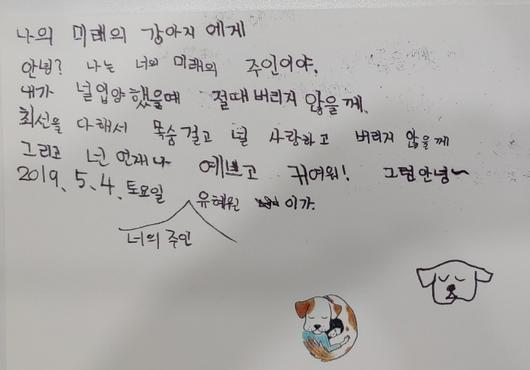 나의 미래의 강아지에게
안녕? 나는 너의 미래의 주인이야.
내가 널 입양했을때 절때 버리지 않을께.
최선을 다해서 목숨걸고 널 사랑하고 버리지 않을께
그리고 넌 언재나 예쁘고 귀여워! 그럼안녕~
2019. 5. 4. 토요일 유혜원 이가.
너의 주인